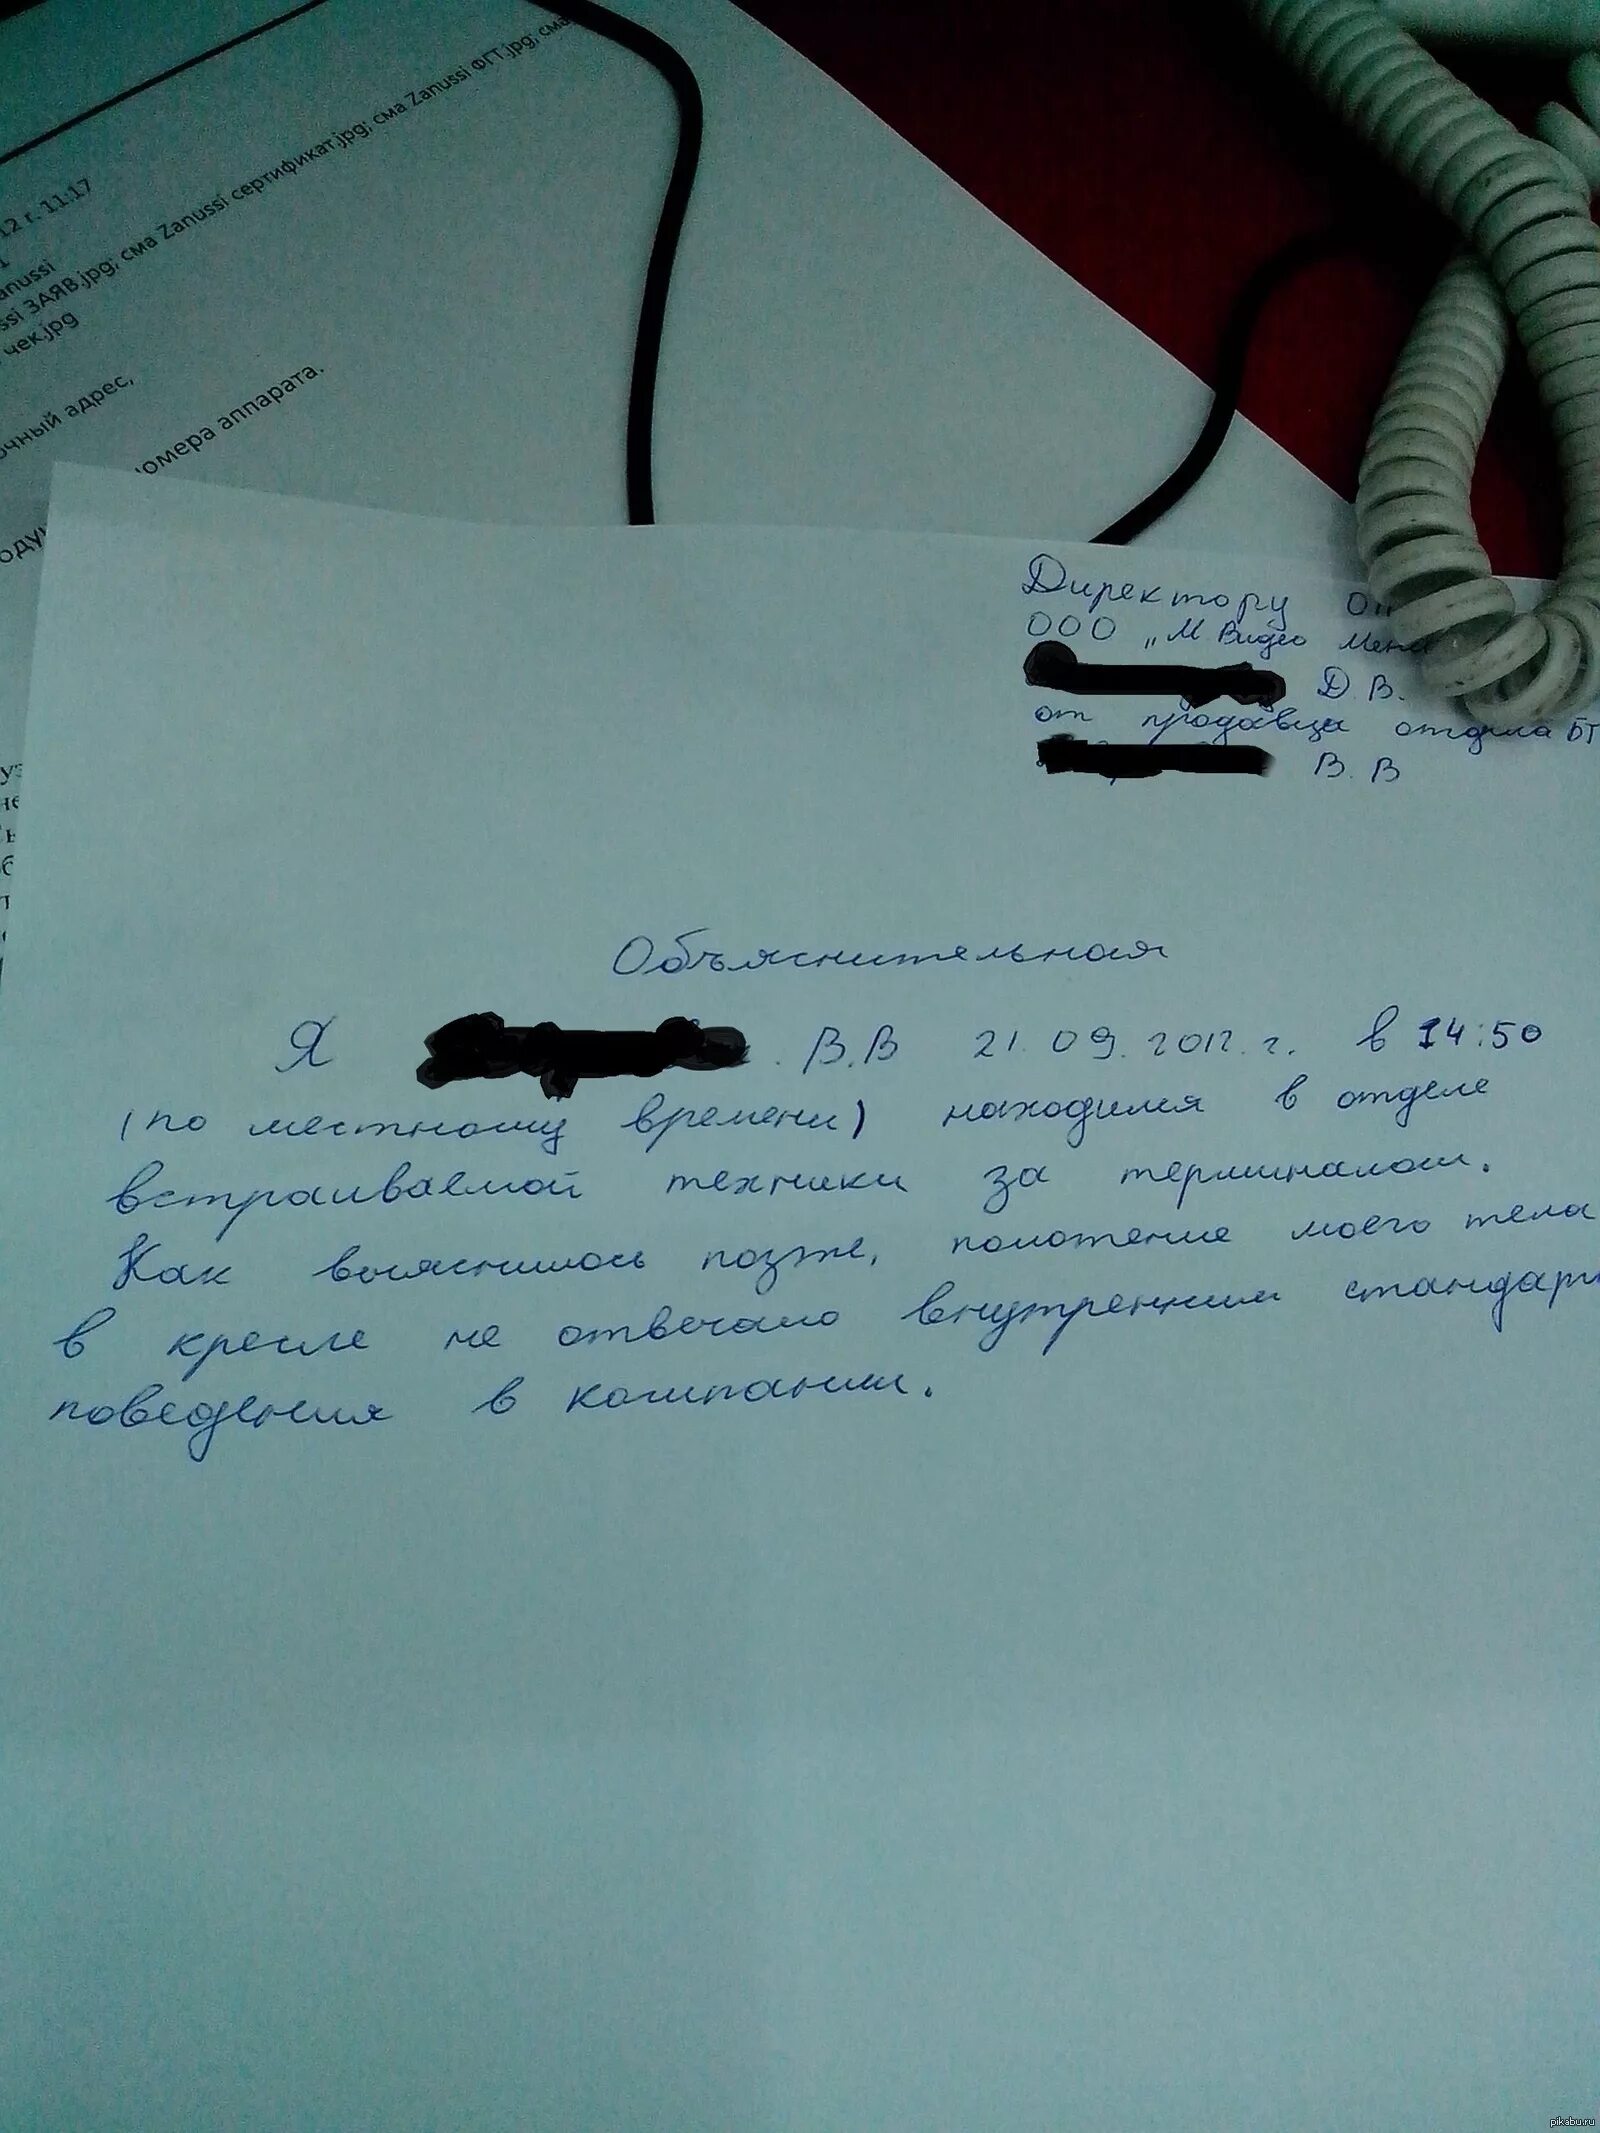 12 г. 11:17
1
anussi
ssi ЗАЯВ.jpg; сма Zanussi сертификат.jpg; сма Zanussi ФГТ.jpg; сма
чек.jpg
очный адрес,
омера аппарата.
Директору
ООО „М Видео Мен
Д.В.
от продавца отдела БТ
В.В
Объяснительная
Я В.В 21.09.2012.г. в 14:50
(по местному времени) находился в отделе
встраиваемой техники за терминалом.
Как выяснилось позже, положение моего тела
в кресле не отвечало внутренним стандарт
поведения в компании.
pikabu.ru